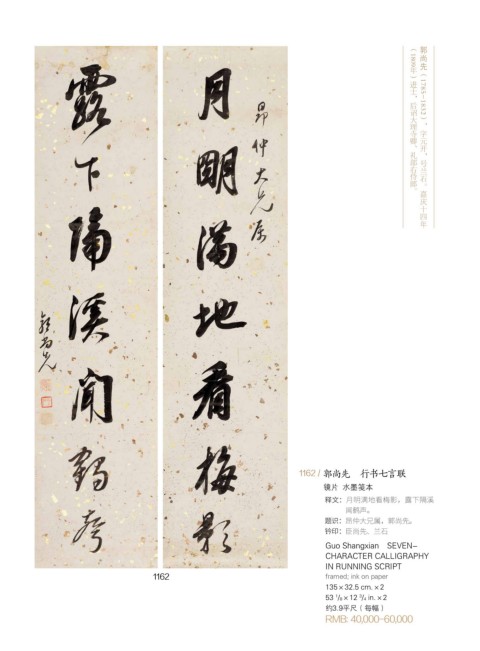 郭尚先（1785-1832），字元开，号兰石，嘉庆十四年
（1809年）进士，后诏大理寺卿、礼部右侍郎。
昂仲大兄属
月明滿地看梅影
露下隔溪聞鶴聲
郭尚先
1162
1162 / 郭尚先 行书七言联
镜片 水墨笺本
释文：月明满地看梅影。露下隔溪
闻鹤声。
题识：昂仲大兄属，郭尚先。
钤印：臣尚先、兰石
Guo Shangxian SEVEN-
CHARACTER CALLIGRAPHY
IN RUNNING SCRIPT
framed; ink on paper
135×32.5 cm.×2
53 1/8×12 3/4 in.×2
约3.9平尺（每幅）
RMB: 40,000-60,000